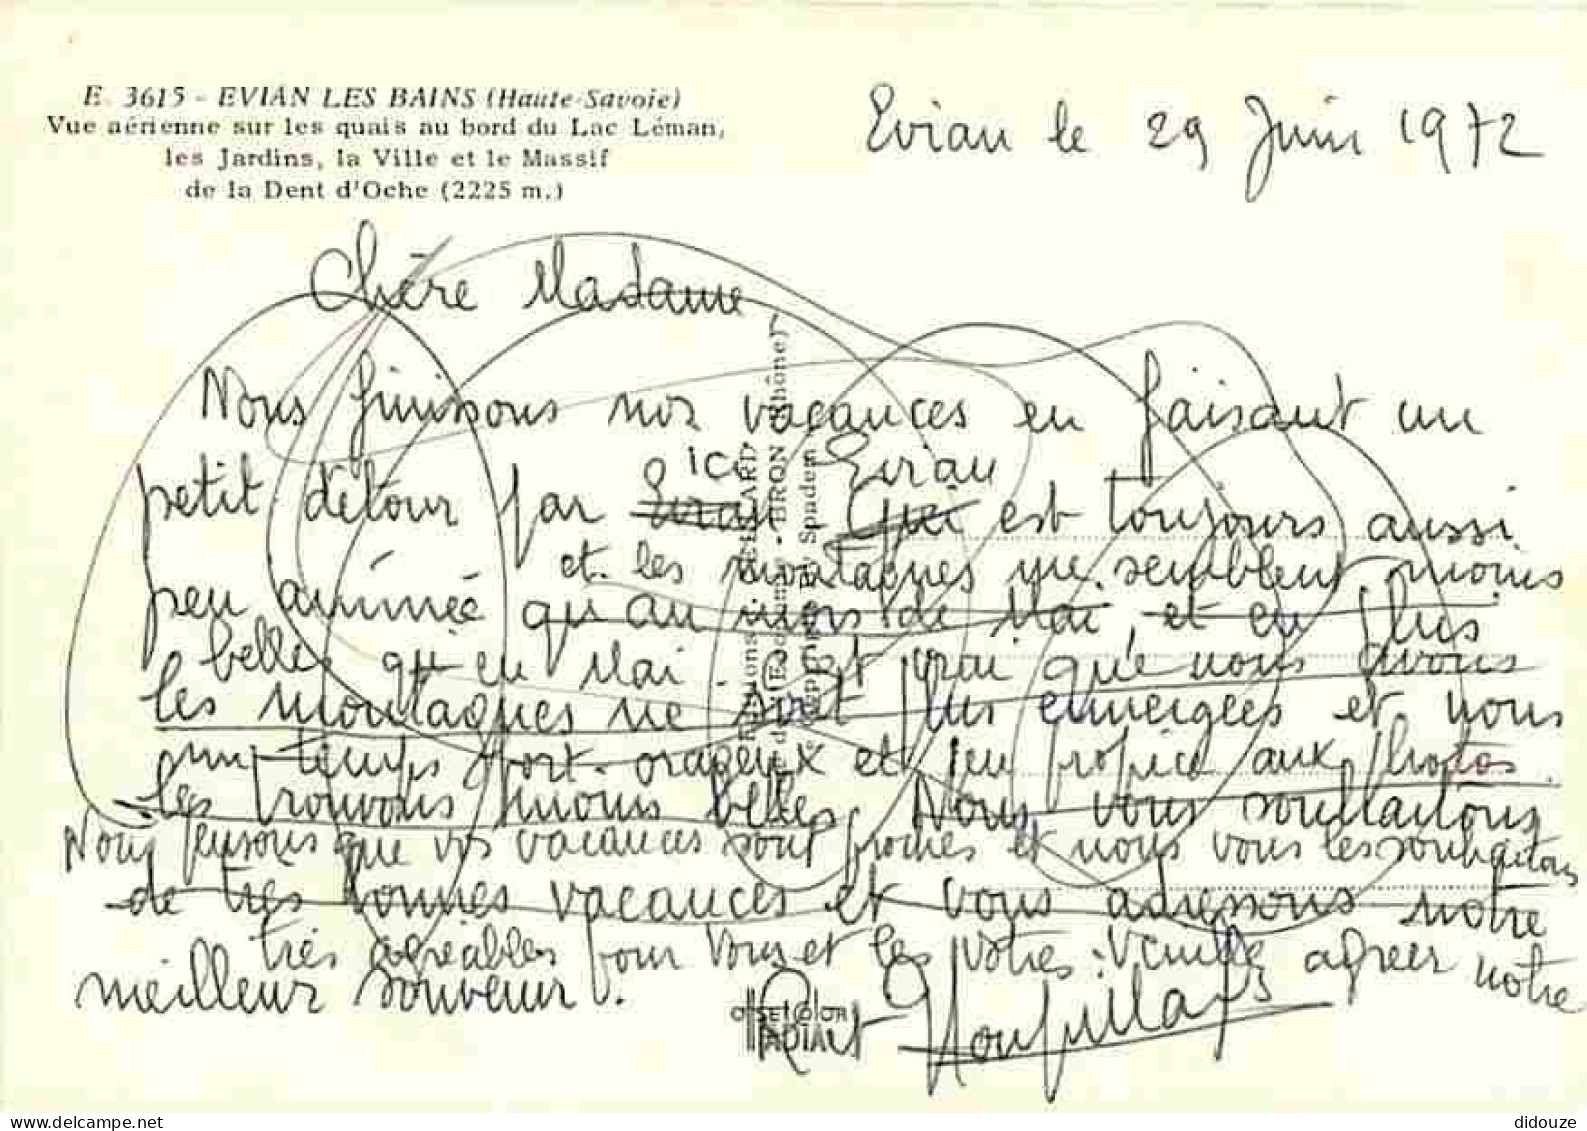 E. 3615 - EVIAN LES BAINS (Haute-Savoie)
Vue aérienne sur les quais au bord du Lac Léman,
les Jardins, la Ville et le Massif
de la Dent d'Oche (2225 m.)
Evian le 29 Juin 1972
Chère Madame
Nous finissons nos vacances en faisant un
ici Evian
petit détour par Evian Qui est toujours aussi
et les montagnes me semblent moins
peu animée qu'au mois de Mai, et en plus
belles qu'en Mai. C'est vrai que nous avons
les montagnes ne sont plus enneigées et nous
un temps fort orageux et peu propice aux photos
les trouvons moins belles. Nous vous souhaitons
Nous pensons que vos vacances sont proches et nous vous les souhaitons
de très bonnes vacances et vous adressons notre
très agréables pour vous et les vôtres. Veuillez agréer notre
meilleur souvenir.
OFFSETCOLOR
didouze